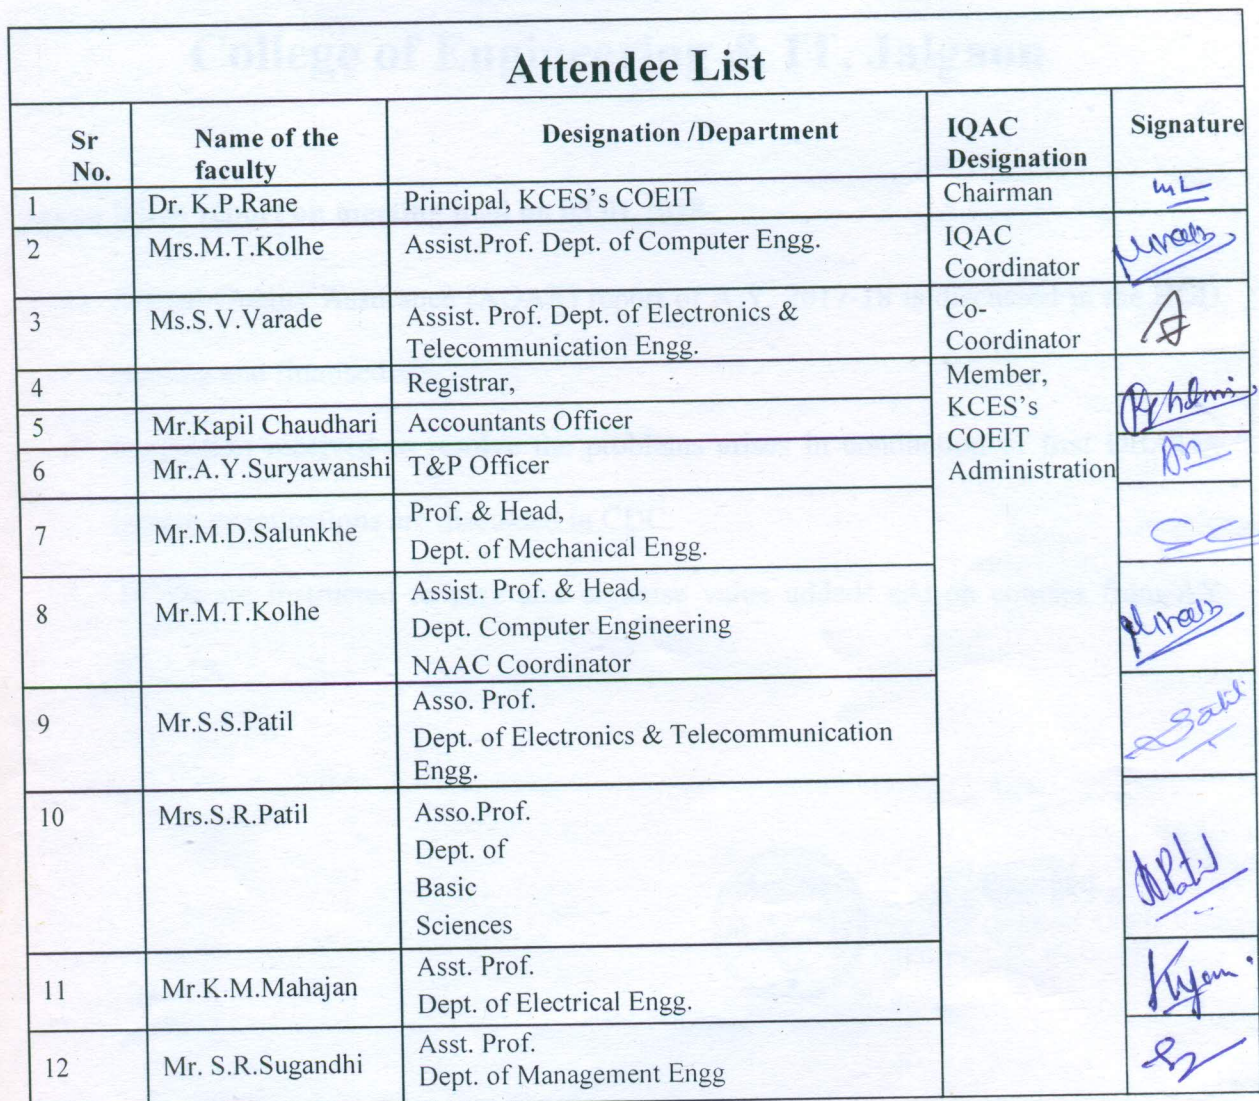 Attendee List
Sr No. Name of the faculty Designation /Department IQAC Designation Signature
1 Dr. K.P.Rane Principal, KCES's COEIT Chairman
2 Mrs.M.T.Kolhe Assist.Prof. Dept. of Computer Engg. IQAC Coordinator
3 Ms.S.V.Varade Assist. Prof. Dept. of Electronics &
Telecommunication Engg. Co-
Coordinator
4 Registrar, Member,
KCES's
5 Mr.Kapil Chaudhari Accountants Officer COEIT
6 Mr.A.Y.Suryawanshi T&P Officer Administration
7 Mr.M.D.Salunkhe Prof. & Head,
Dept. of Mechanical Engg.
8 Mr.M.T.Kolhe Assist. Prof. & Head,
Dept. Computer Engineering
NAAC Coordinator
9 Mr.S.S.Patil Asso. Prof.
Dept. of Electronics & Telecommunication
Engg.
10 Mrs.S.R.Patil Asso.Prof.
Dept. of
Basic
Sciences
11 Mr.K.M.Mahajan Asst. Prof.
Dept. of Electrical Engg.
12 Mr. S.R.Sugandhi Asst. Prof.
Dept. of Management Engg